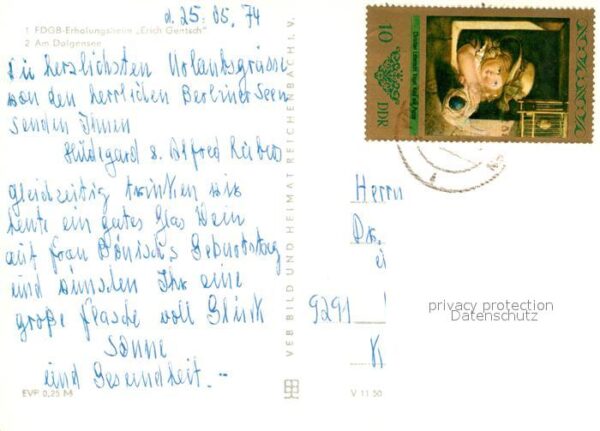 d. 25. 05. 74
1 FDGB-Erholungsheim „Erich Gentsch“
2 Am Dolgensee
Die herzlichsten Urlaubsgrüsse
von den herrlichen Berliner Seen
senden Ihnen
Hildegard u. Alfred
Gleichzeitig trinken wir
heute ein gutes Glas Wein
auf Frau Bönisch's Geburtstag
und wünschen Ihr eine
große Flasche voll Glück
Sonne
und Gesundheit. –
EVP 0,25 M
VEB BILD UND HEIMAT REICHENBACH I. V.
V 11 50
10
DDR
Herrn
9291
privacy protection
Datenschutz